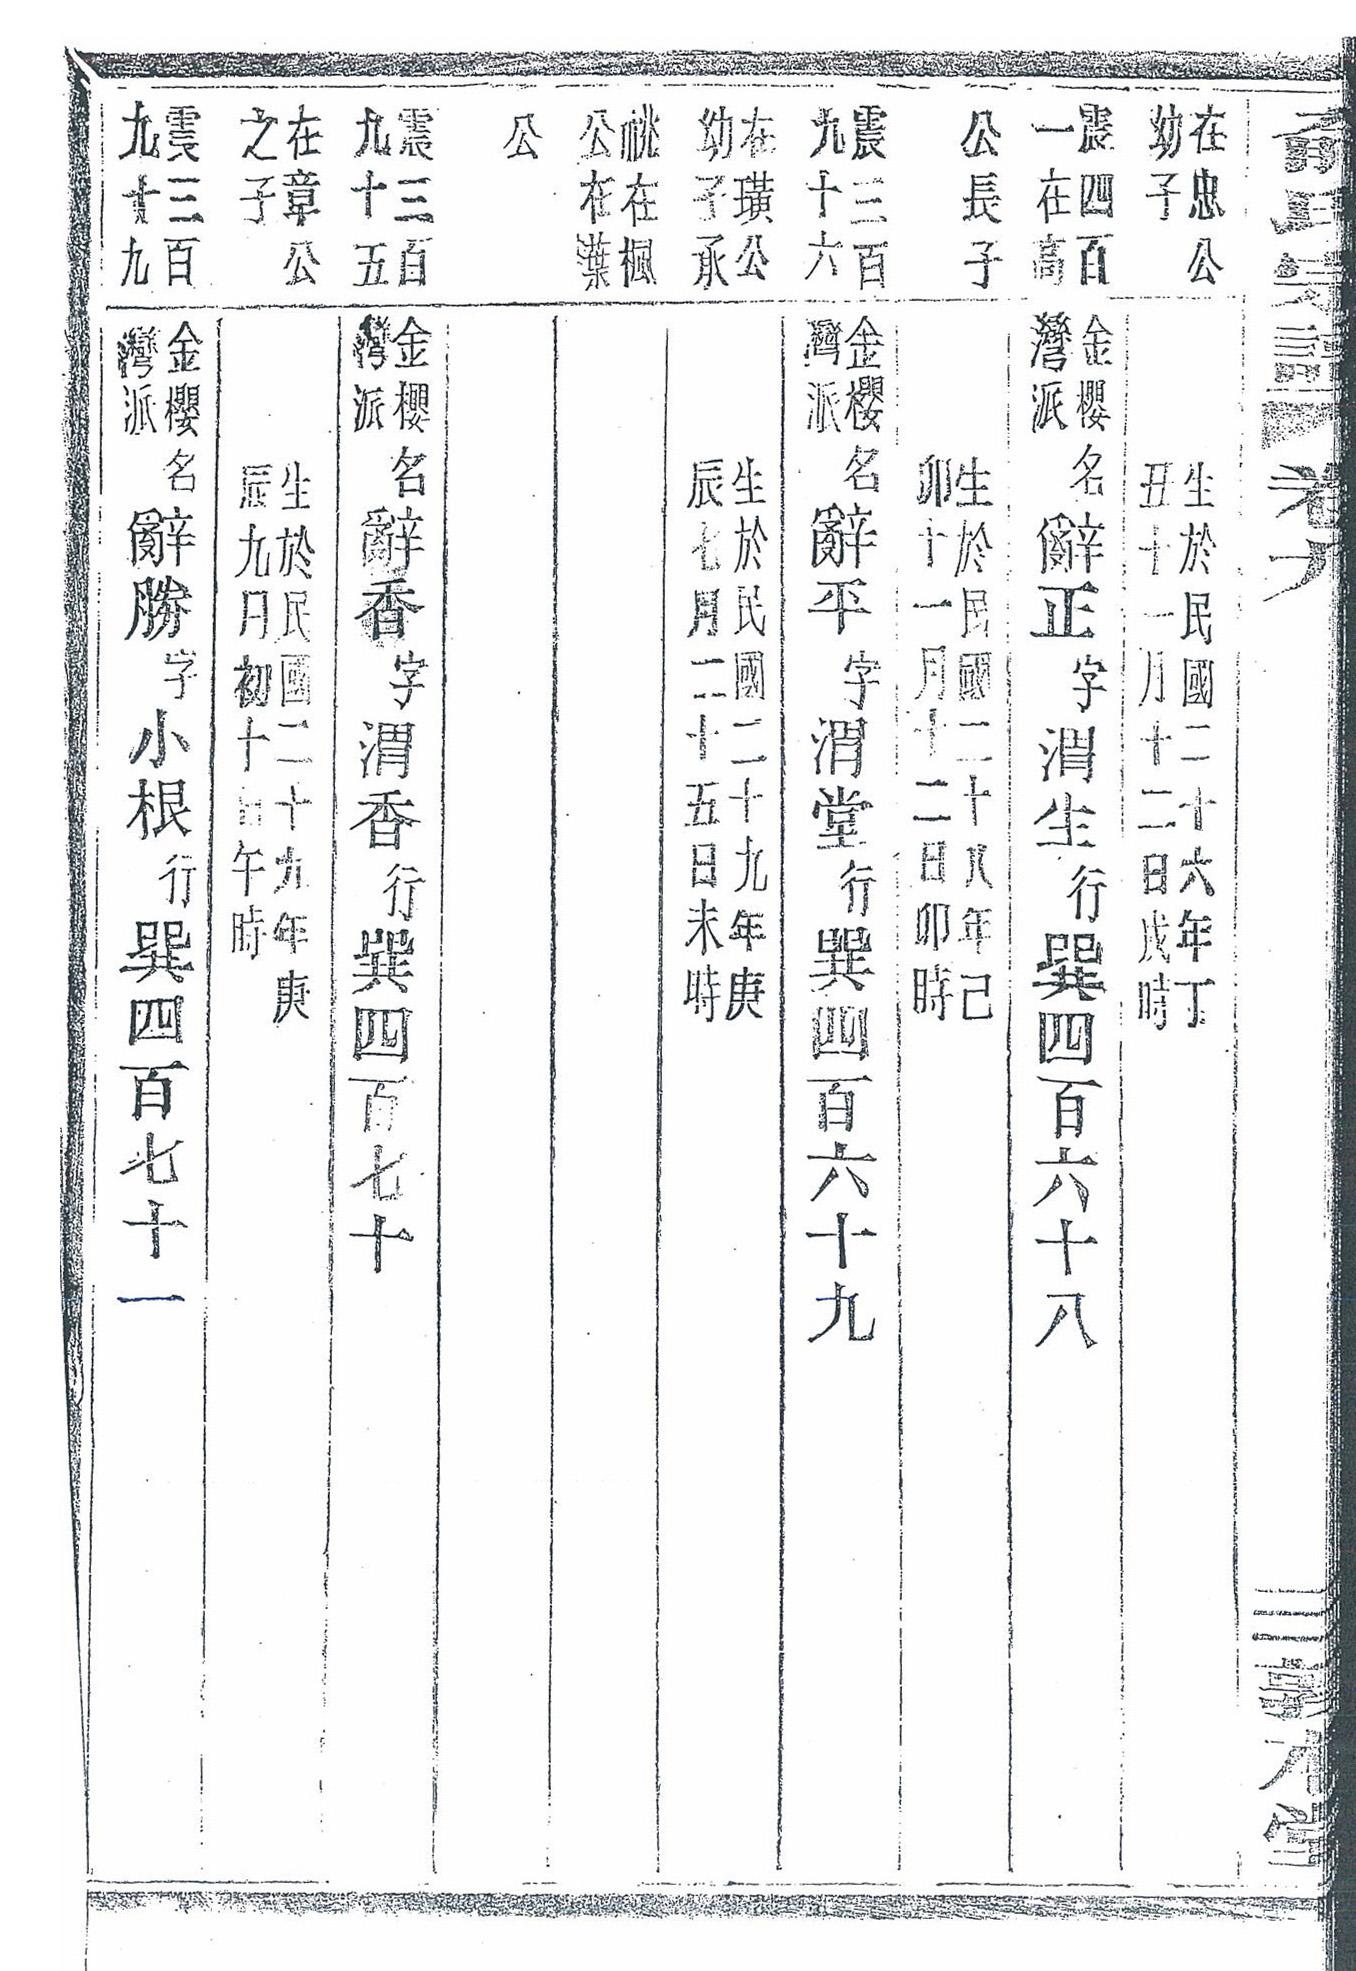 卷
堂
在忠公
幼子
生於民國二十六年丁
丑十一月十二日戌時
震四百
一在高
金櫻
灣派
名辭正字渭生行巽四百六十八
公長子
生於民國二十八年己
卯十一月十二日卯時
震三百
九十六
金櫻
灣派
名辭平字渭堂行巽四百六十九
在璜公
幼子承
生於民國二十九年庚
辰七月二十五日未時
祧在楓
公在葉
公
震三百
九十五
金櫻
灣派
名辭香字渭香行巽四百七十
在章公
之子
生於民國二十九年庚
辰九月初十日午時
震三百
九十九
金櫻
灣派
名辭勝字小根行巽四百七十一